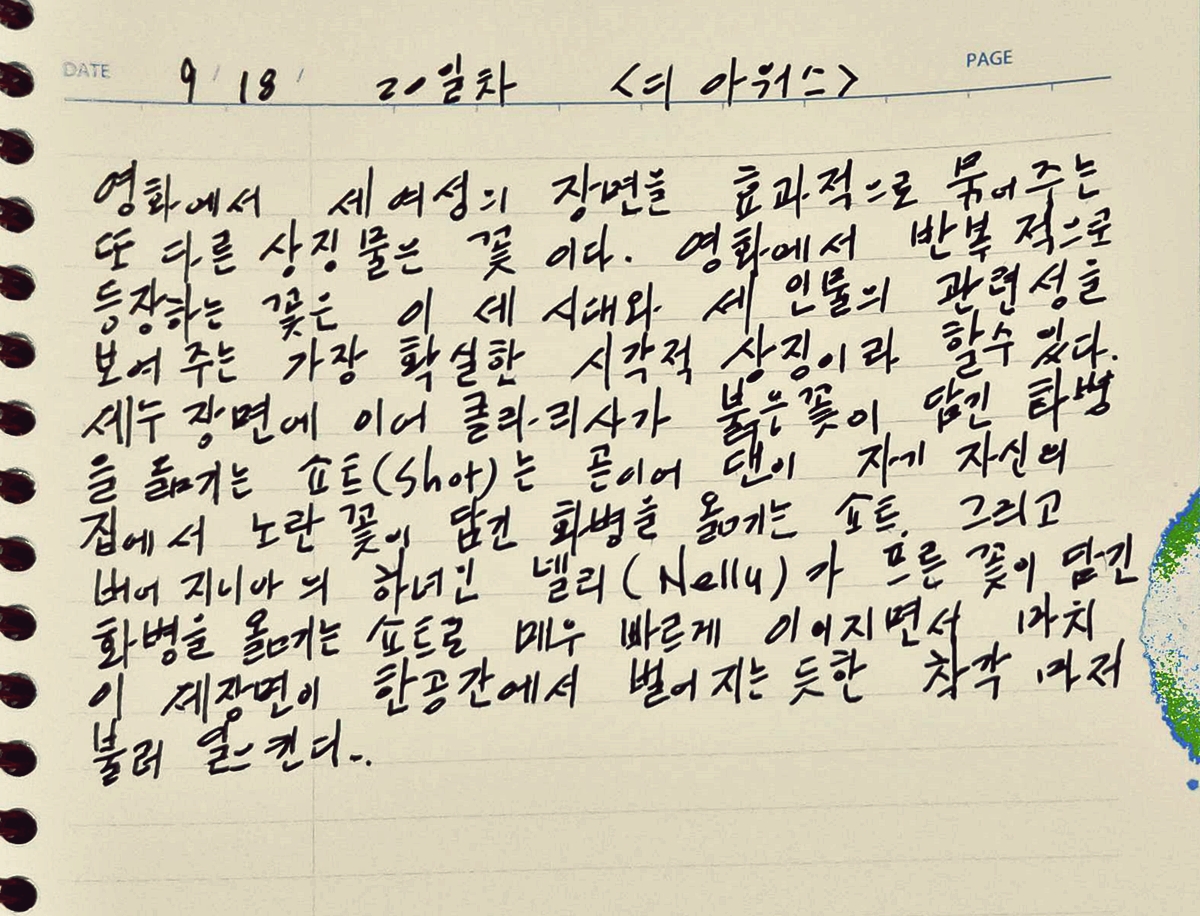 DATE 9 / 18 / 20일차 <디 아워스> PAGE
영화에서 세 여성의 장면을 효과적으로 묶어주는
또 다른 상징물은 꽃 이다. 영화에서 반복 적으로
등장하는 꽃은 이 세 시대와 세 인물의 관련성을
보여 주는 가장 확실한 시각적 상징이라 할수 있다.
세누 장면에 이어 클라리사가 붉은꽃이 담긴 화병
을 옮기는 쇼트(Shot)는 곧이어 댄이 자기 자신의
집에서 노란 꽃이 담긴 화병을 옮기는 쇼트, 그리고
버어 지니아의 하녀인 넬리(Nelly)가 푸른 꽃이 담긴
화병을 옮기는 쇼트로 매우 빠르게 이어지면서 마치
이 세장면이 한공간에서 벌어지는 듯한 착각 마저
불러 일으킨다..